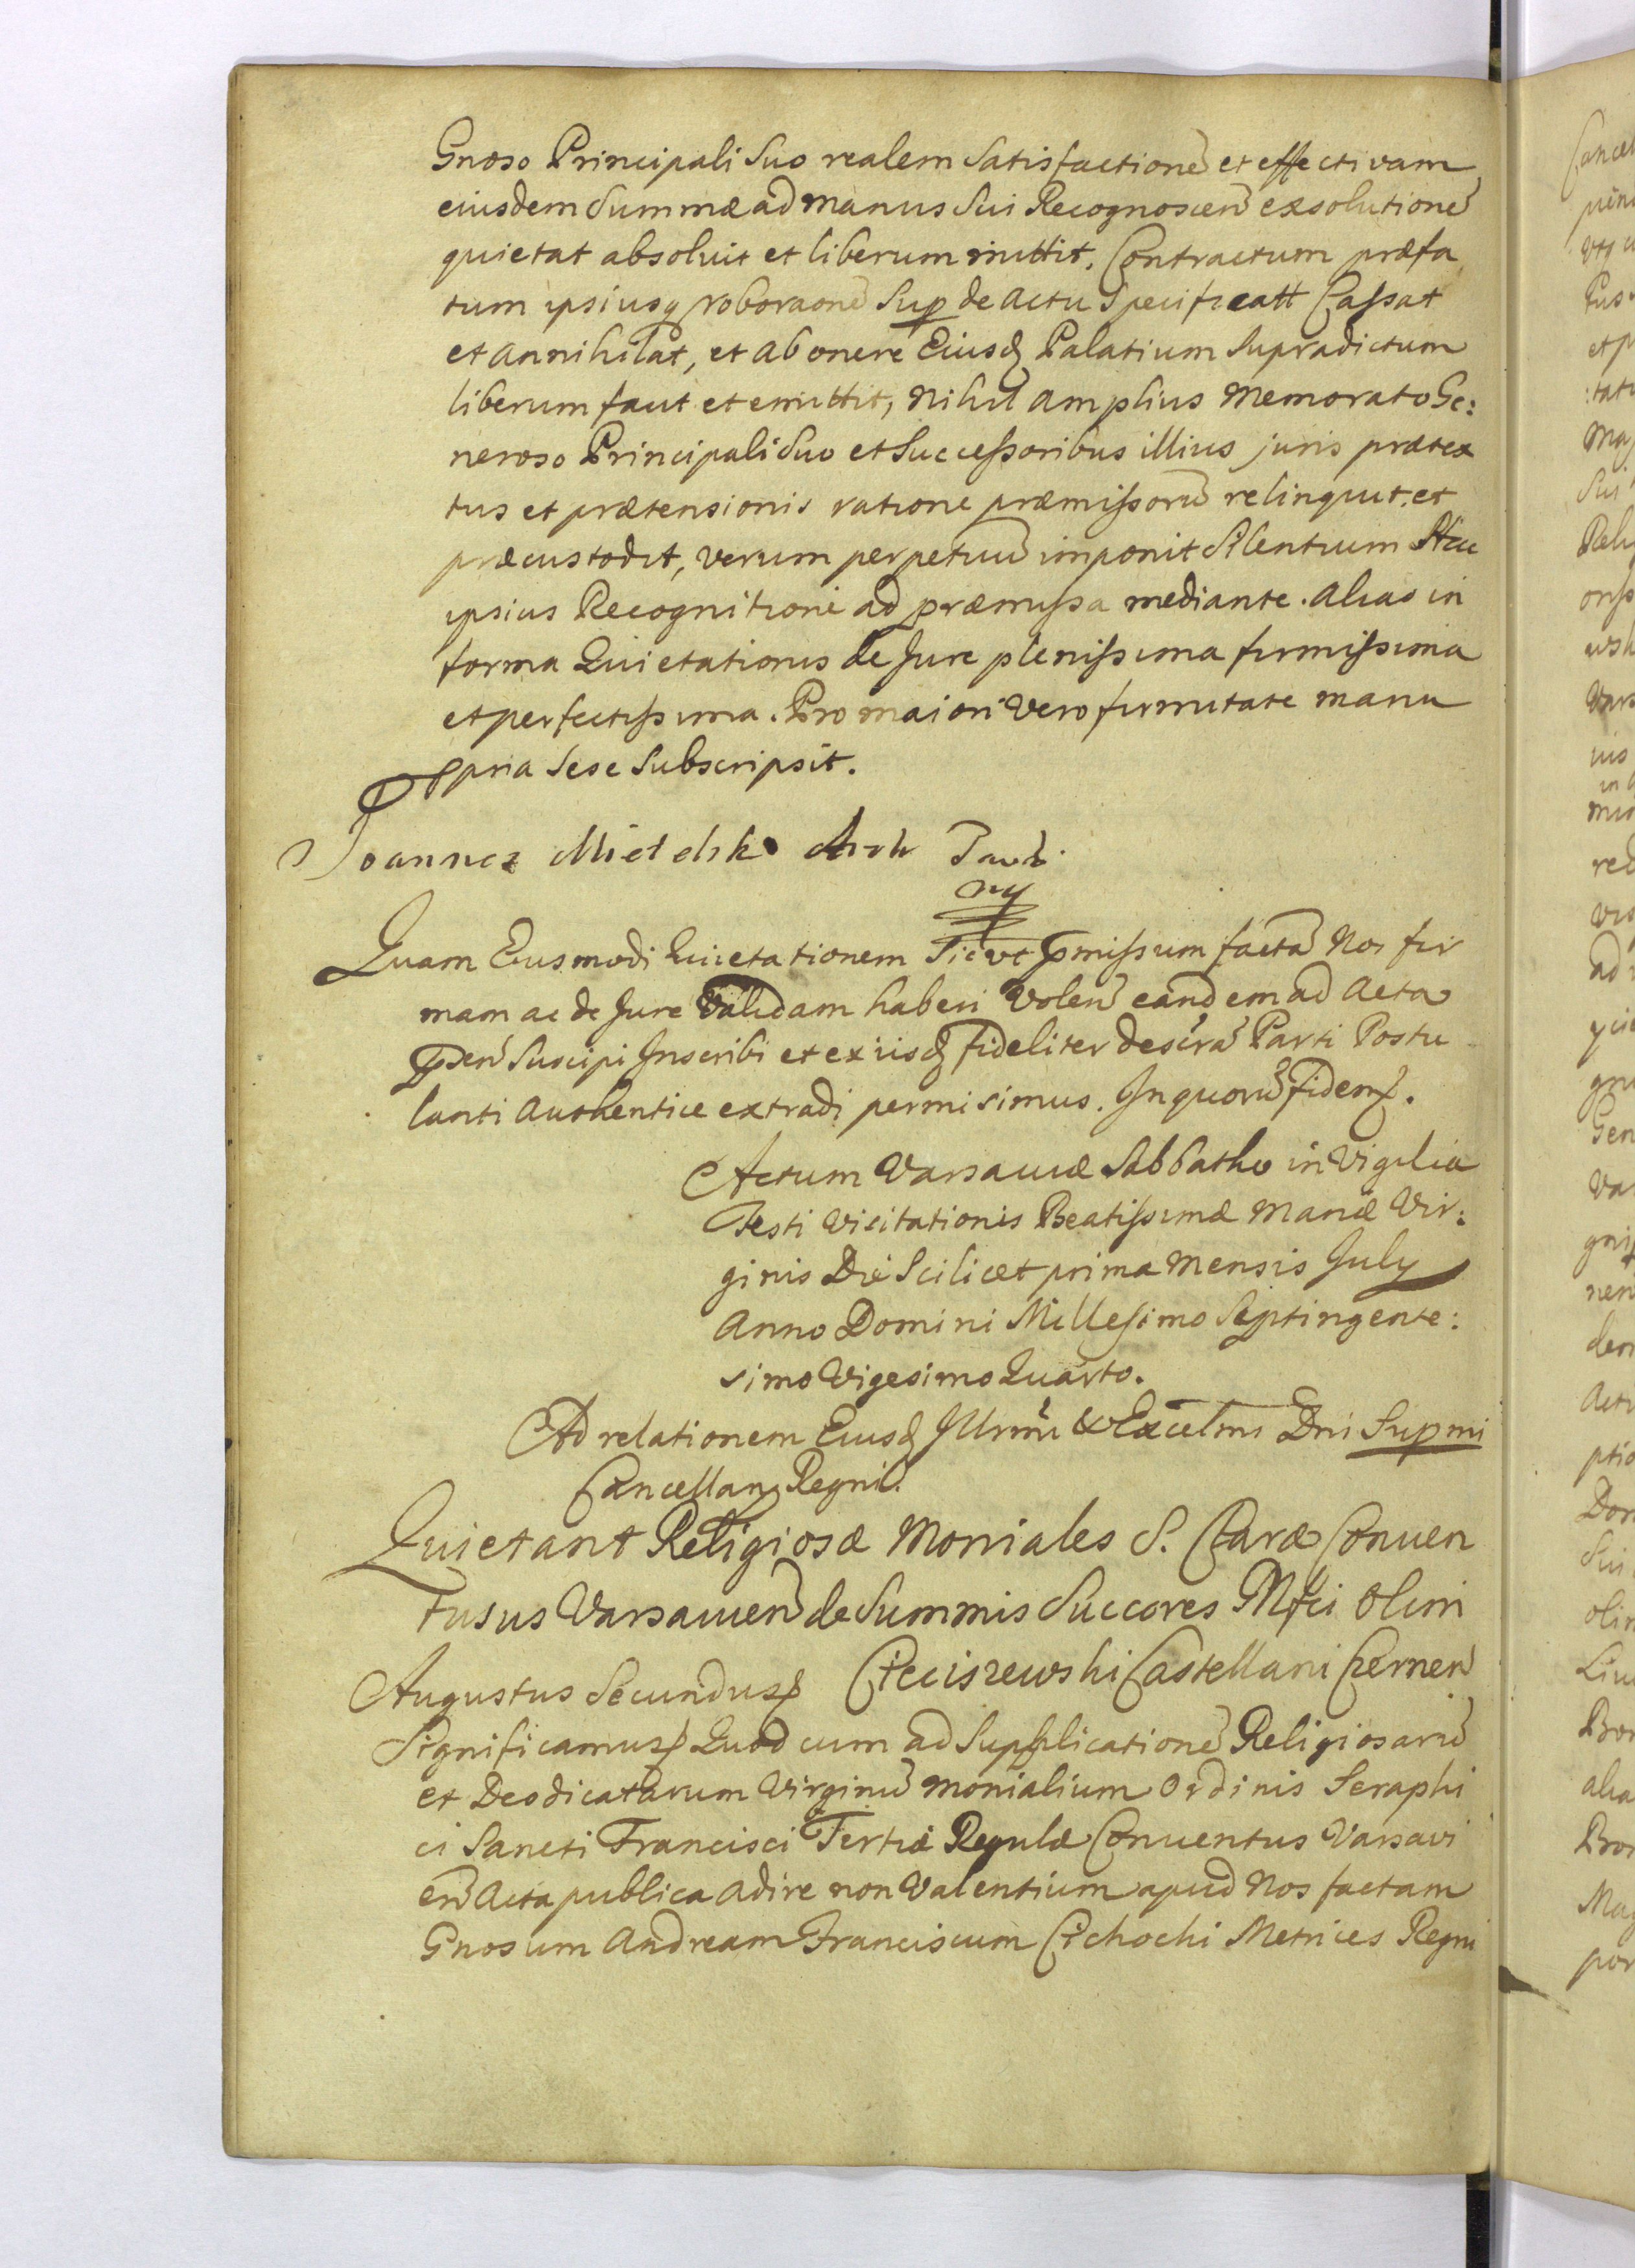 Gnoso Principali Suo realem Satisfactione et effectivam
eiusdem Summæ ad manus Sui Recognoscen exsolutione
quietat absoluit et liberum mittit. Contractum præfa
tum ipsiusq roboraone Sup de actu Specificatt Cassat
et annihilat, et ab onere Eiusd Palatium Supradictum
liberum facit et emittit, Nihil amplius Memorato Ge:
neroso Principali Suo et Successoribus illius juris prætex
tus et prætensionis ratione præmissoru relinquit et
præcustodit, verum perpetuu imponit Silentium Hac
ipsius Recognitione ad præmissa mediante. Alias in
forma Quietationis de Jure plenissima firmissima
et perfectissima. Pro maiori Vero firmitate manu
ppria Sese Subscripsit.
Joannes
Quam Eiusmodi Quietationem Sicut pmissum facta Nos fir
mam ac de Jure Validam haberi Volen eandem ad Acta
pnsen Suscipi Inscribi et ex iisd fideliter descra Parti Postu
lanti Authentice extradi permisimus. In quoru Fidem.
Actum Varsaviæ Sabbatho in Vigilia
Festi Visitationis Beatissimæ Mariæ Vir:
ginis Die Scilicet prima Mensis July
Anno Domini Millesimo Septingente:
simo Vigesimo Quarto.
Ad relationem Eiusd Illrmi & Excelmi Dni Supmi
Cancellarij Regni.
Quietant Religiosæ Moniales S. Claræ Conuen
tusus Varsauien de Summis Succores Mfci Olim
Cieciszewski Castellani Czernen
Augustus Secundus
Significamus Quod cum ad Supplicatione Religiosaru
et Deodicatarum Virginu Monialium Ordinis Seraphi
ci Sancti Francisci Tertiæ Regulæ Conuentus Varsavi
en Acta publica adire non Valentium apud Nos factam
Gnosum Andream Franciscum Cichocki Metrices Regni